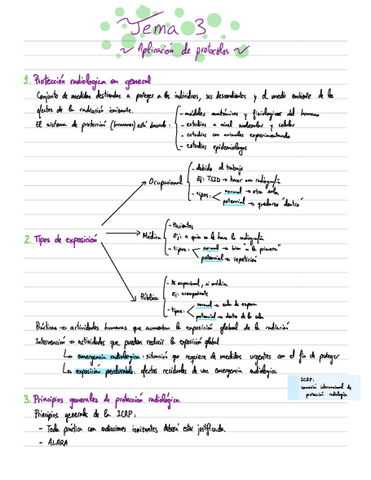 Tema 3
~ Aplicación de protocolos ~
1. Protección radiológica en general
Conjunto de medidas destinadas a proteger a los individuos, sus descendientes y el medio ambiente de los
efectos de la radiación ionizante.
El sistema de protección (humanos) está basado:
- modelos anatómicos y fisiológicos del humano
- estudios a nivel molecular y celular
- estudios con animales experimentando
- estudios epidemiológicos
2. Tipos de exposición
Ocupacional
- debido al trabajo
Ej: TSID → hacer una radiografía
- tipos:
normal → otra sala
potencial → quedarse "dentro"
Médica
- Pacientes
Ej: a quien se le hace la radiografía
- tipos:
normal → bien "a la primera"
potencial → repetición
Pública
- Ni ocupacional, ni médica
Ej: acompañante
- tipos:
normal → sala de espera
potencial → dentro de la sala
Prácticas → actividades humanas que aumentan la exposición global de la radiación
Intervención → actividades que puedan reducir la exposición global
emergencia radiológica: situación que requiere de medidas urgentes con el fin de proteger
exposición perdurable: efectos residuales de una emergencia radiológica
ICRP:
comisión internacional de
protección radiológica
3. Principios generales de protección radiológica
Principios generales de la ICRP:
- Toda práctica con radiaciones ionizantes deberá estar justificada.
- ALARA